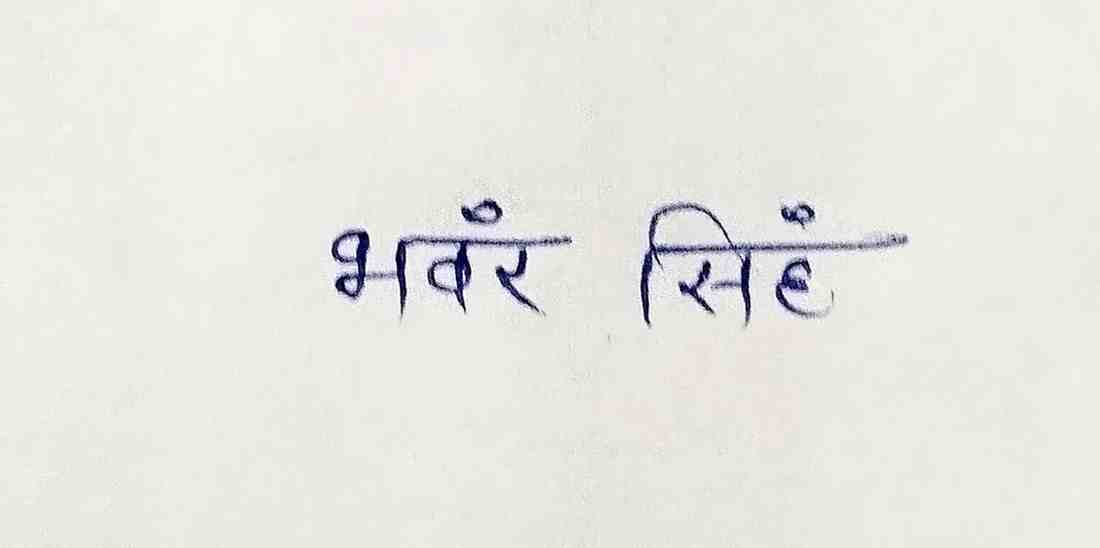 भवंर सिहं